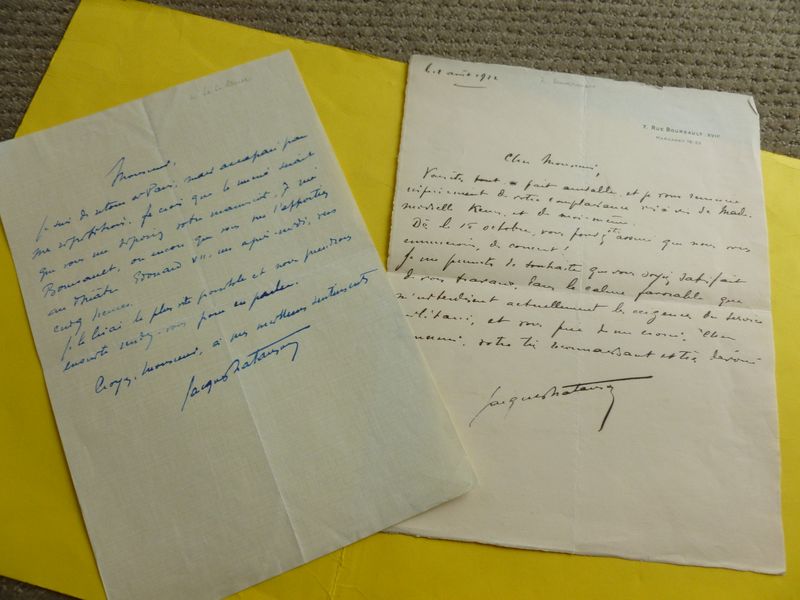 Monsieur,
Je suis de retour à Paris, mais accaparé par
mes répétitions. Je crois que le mieux serait
que vous me déposiez votre manuscrit, 7, rue
Boursault, ou encore que vous me l'apportiez
au théâtre Edouard VII, un après-midi, vers
cinq heures.
Je le lirai le plus vite possible et nous prendrons
ensuite rendez-vous pour en parler.
Croyez, Monsieur, à mes meilleurs sentiments
Jacques Natanson
Le 8 août 1922
7, RUE BOURSAULT. XVIIᵉ
Cher Monsieur,
Vous êtes tout à fait aimable, et je vous remercie
infiniment de votre complaisance vis à vis de Made-
moiselle Kerns, et de moi-même.
Dès le 15 octobre, vous pouvez être assuré que nous vous
de concert!
Je me permets de souhaiter que vous soyez satisfait
de vos travaux, dans le calme favorable que
m'interdisent actuellement les exigences du service
militaire, et vous prie de me croire, Cher
Monsieur, votre très reconnaissant et très dévoué
Jacques Natanson